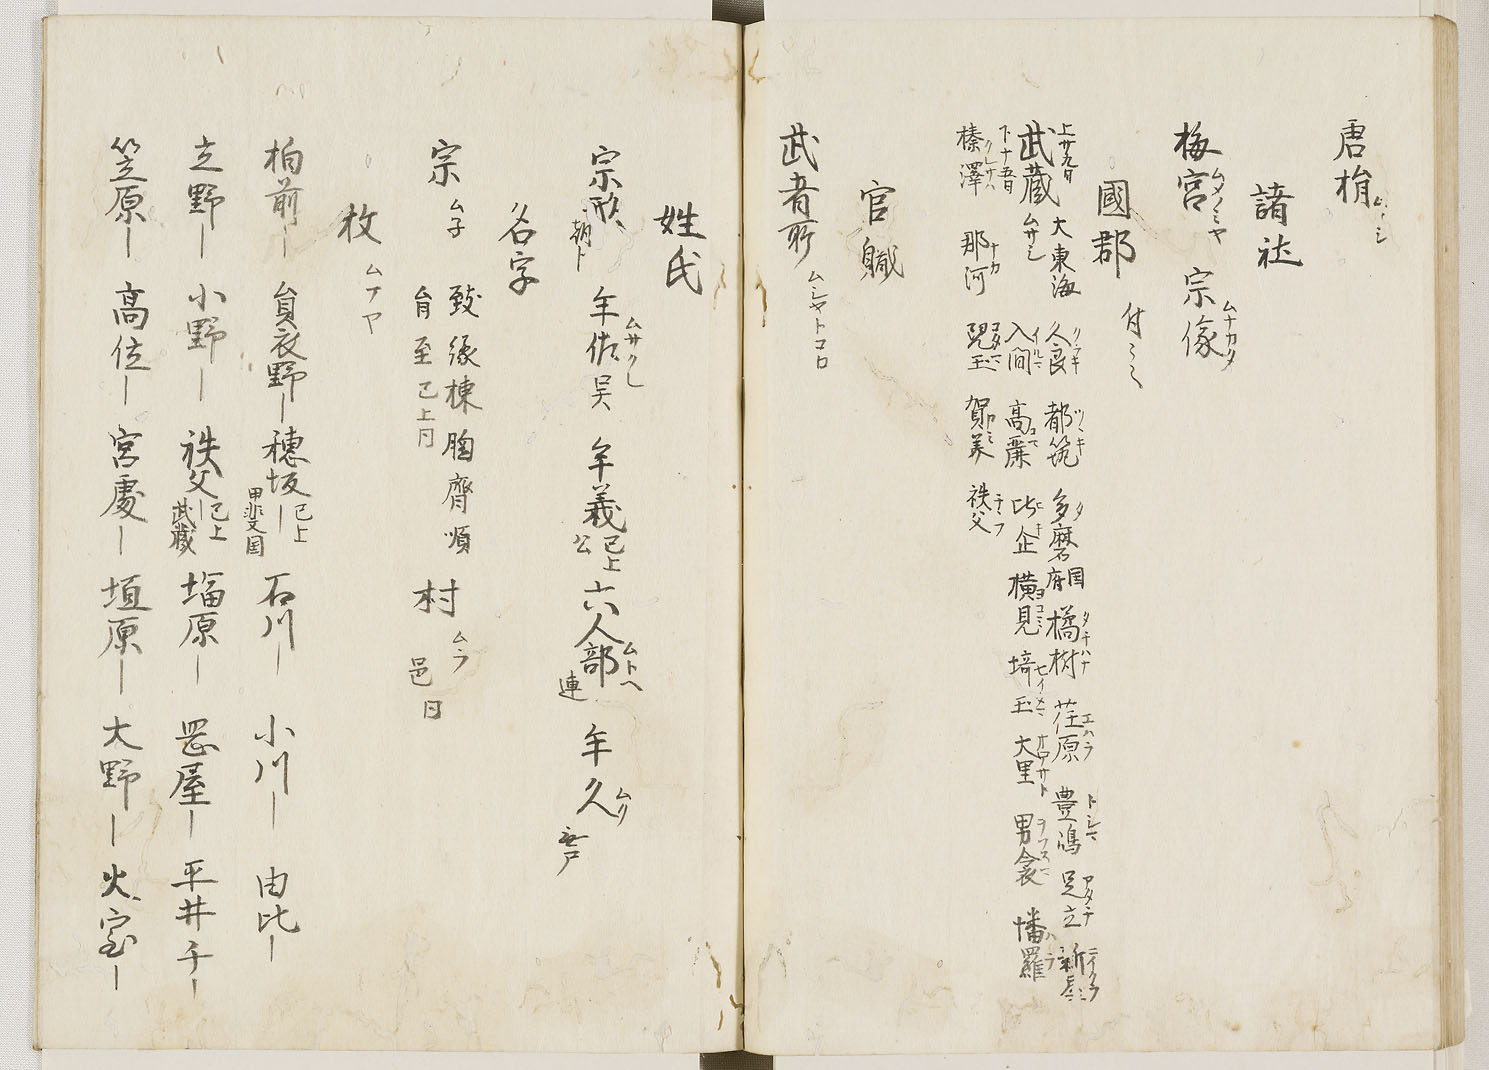 唐楫 ムーシ
諸社
梅宮 ムメノミヤ 宗像 ムナカタ
國郡 付ミミ
武蔵 ムサシ 上廿九日 下十五日 大東海 久良 クラキ 都筑 ツヽキ 多磨 タ 国府 橘樹 タチハナ 荏原 エハラ 豊嶋 トシマ 足立 アタチ 新座 ニイクラ
入間 イルマ 高麗 コマ 比企 ヒキ 横見 ヨコミ 埼玉 サイタマ 大里 オホサト 男衾 ヲフスマ 幡羅 ハラ
榛澤 ハンサハ 那河 ナカ 児玉 コタマ 賀美 カミ 秩父 チヽフ
官職
武者所 ムシヤトコロ
姓氏
宗形 朝ト 牟佐呉 ムサクレ 牟義 已上公 六人部 ムトヘ 連 牟久 ムク
名字
宗 ムネ 致 緣 棟 胸 齊 順
肙 至 已上同
村 ムラ 邑 同
枚 ムナヤ
柏前ー 眞衣野ー 穗坂ー 已上甲斐国 石川ー 小川ー 由比ー
立野ー 小野ー 秩父ー 已上武蔵 塩原ー 罡屋ー 平井チー
笠原ー 高位ー 宮處ー 垣原ー 大野ー 大室ー